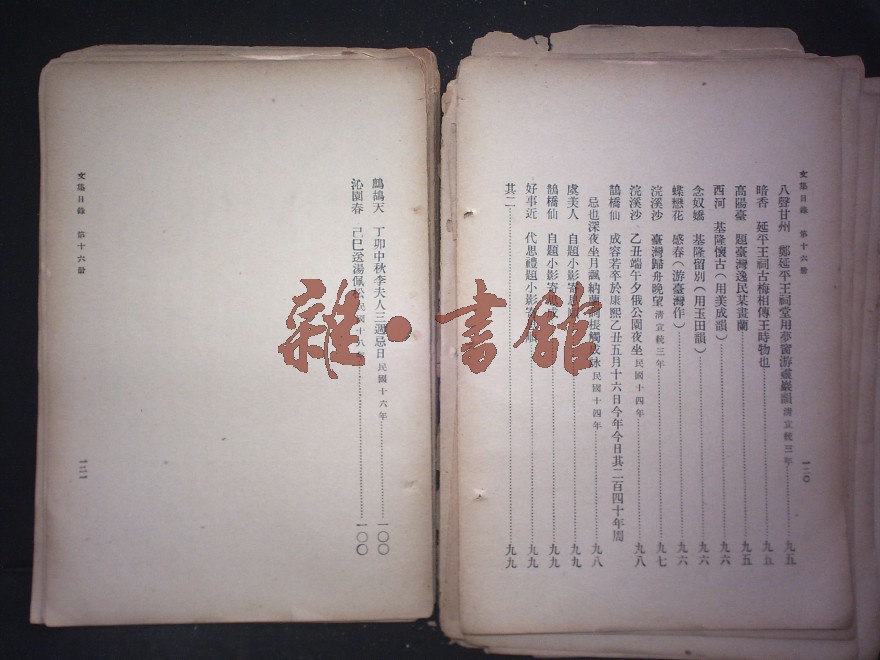 文集目錄　第十六册
一二〇
八聲甘州　鄭延平王祠堂用夢窗游靈巖韻清宣統三年……九五
暗香　延平王祠古梅相傳王時物也……九五
高陽臺　題臺灣逸民某畫蘭……九五
西河　基隆懷古（用美成韻）……九六
念奴嬌　基隆留別（用玉田韻）……九六
蝶戀花　感春（游臺灣作）……九六
浣溪沙　臺灣歸舟晚望清宣統三年……九七
浣溪沙　乙丑端午夕俄公園夜坐民國十四年……九八
鵲橋仙　成容若卒於康熙乙丑五月十六日今年今日其二百四十年周
忌也深夜坐月諷納蘭詞悵觸成詠民國十四年……九八
虞美人　自題小影寄思順……九九
鵲橋仙　自題小影寄思成……九九
好事近　代思禮題小影寄思順……九九
其二……九九
文集目錄　第十六册
一二一
鷓鴣天　丁卯中秋李夫人三週忌日民國十六年……一〇〇
沁園春　己巳送湯佩松民國十八年……一〇〇
雜·書館